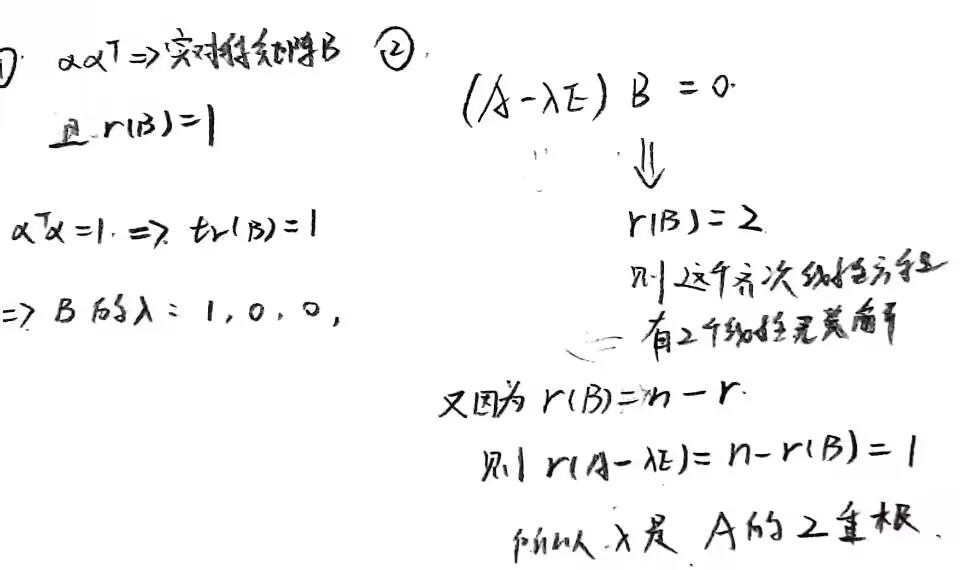 ① αα^T => 实对称矩阵B
且 r(B)=1
α^Tα=1. => tr(B)=1
=> B的λ: 1, 0, 0,
②.
(A-λE) B = 0.
⇓
r(B)=2
则这个齐次线性方程
有2个线性无关解
又因为 r(B)=n-r.
则 r(A-λE)=n-r(B)=1
所以 λ是 A的2重根.